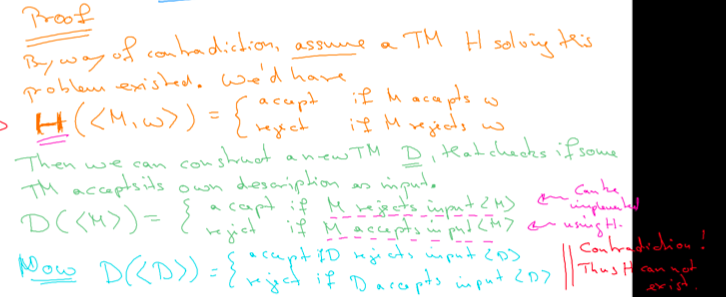 Proof
By way of contradiction, assume a TM H solving this
problem existed. We'd have
H(<M,w>) = { accept if M accepts w
reject if M rejects w
Then we can construct a new TM D, that checks if some
TM accepts its own description as input.
D(<M>) = { accept if M rejects input <M> ← Can be implemented
reject if M accepts input <M> ← using H.
Now D(<D>) = { accept if D rejects input <D>
reject if D accepts input <D>
Contradiction!
Thus H can not
exist.